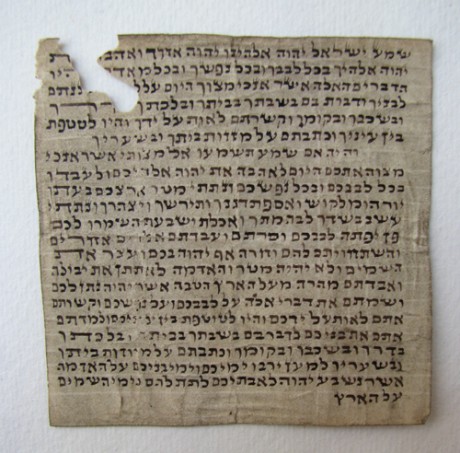 שמע ישראל יהוה אלהינו יהוה אחד
יהוה אלהיך בכל לבבך ובכל נפשך ובכל
הדברים האלה אשר אנכי מצוך היום על
לבניך ודברת בם בשבתך בביתך ובלכתך בדרך
ובשכבך ובקומך וקשרתם לאות על ידך והיו לטטפת
בין עיניך וכתבתם על מזזות ביתך ובשעריך
והיה אם שמע תשמעו אל מצותי אשר אנכי
מצוה אתכם היום לאהבה את יהוה אלהיכם ולעבדו
בכל לבבכם ובכל נפשכם ונתתי מטר ארצכם בעתו
יורה ומלקוש ואספת דגנך ותירשך ויצהרך ונתתי
עשב בשדך לבהמתך ואכלת ושבעת השמרו לכם
פן יפתה לבבכם וסרתם ועבדתם אלהים אחרים
והשתחויתם להם וחרה אף יהוה בכם ועצר את
השמים ולא יהיה מטר והאדמה לא תתן את יבולה
ואבדתם מהרה מעל הארץ הטבה אשר יהוה נתן לכם
ושמתם את דברי אלה על לבבכם ועל נפשכם וקשרתם
אתם לאות על ידכם והיו לטוטפת בין עיניכם ולמדתם
אתם את בניכם לדבר בם בשבתך בביתך ובלכתך
בדרך ובשכבך ובקומך וכתבתם על מזוזות ביתך
ובשעריך למען ירבו ימיכם וימי בניכם על האדמה
אשר נשבע יהוה לאבתיכם לתת להם כימי השמים
על הארץ